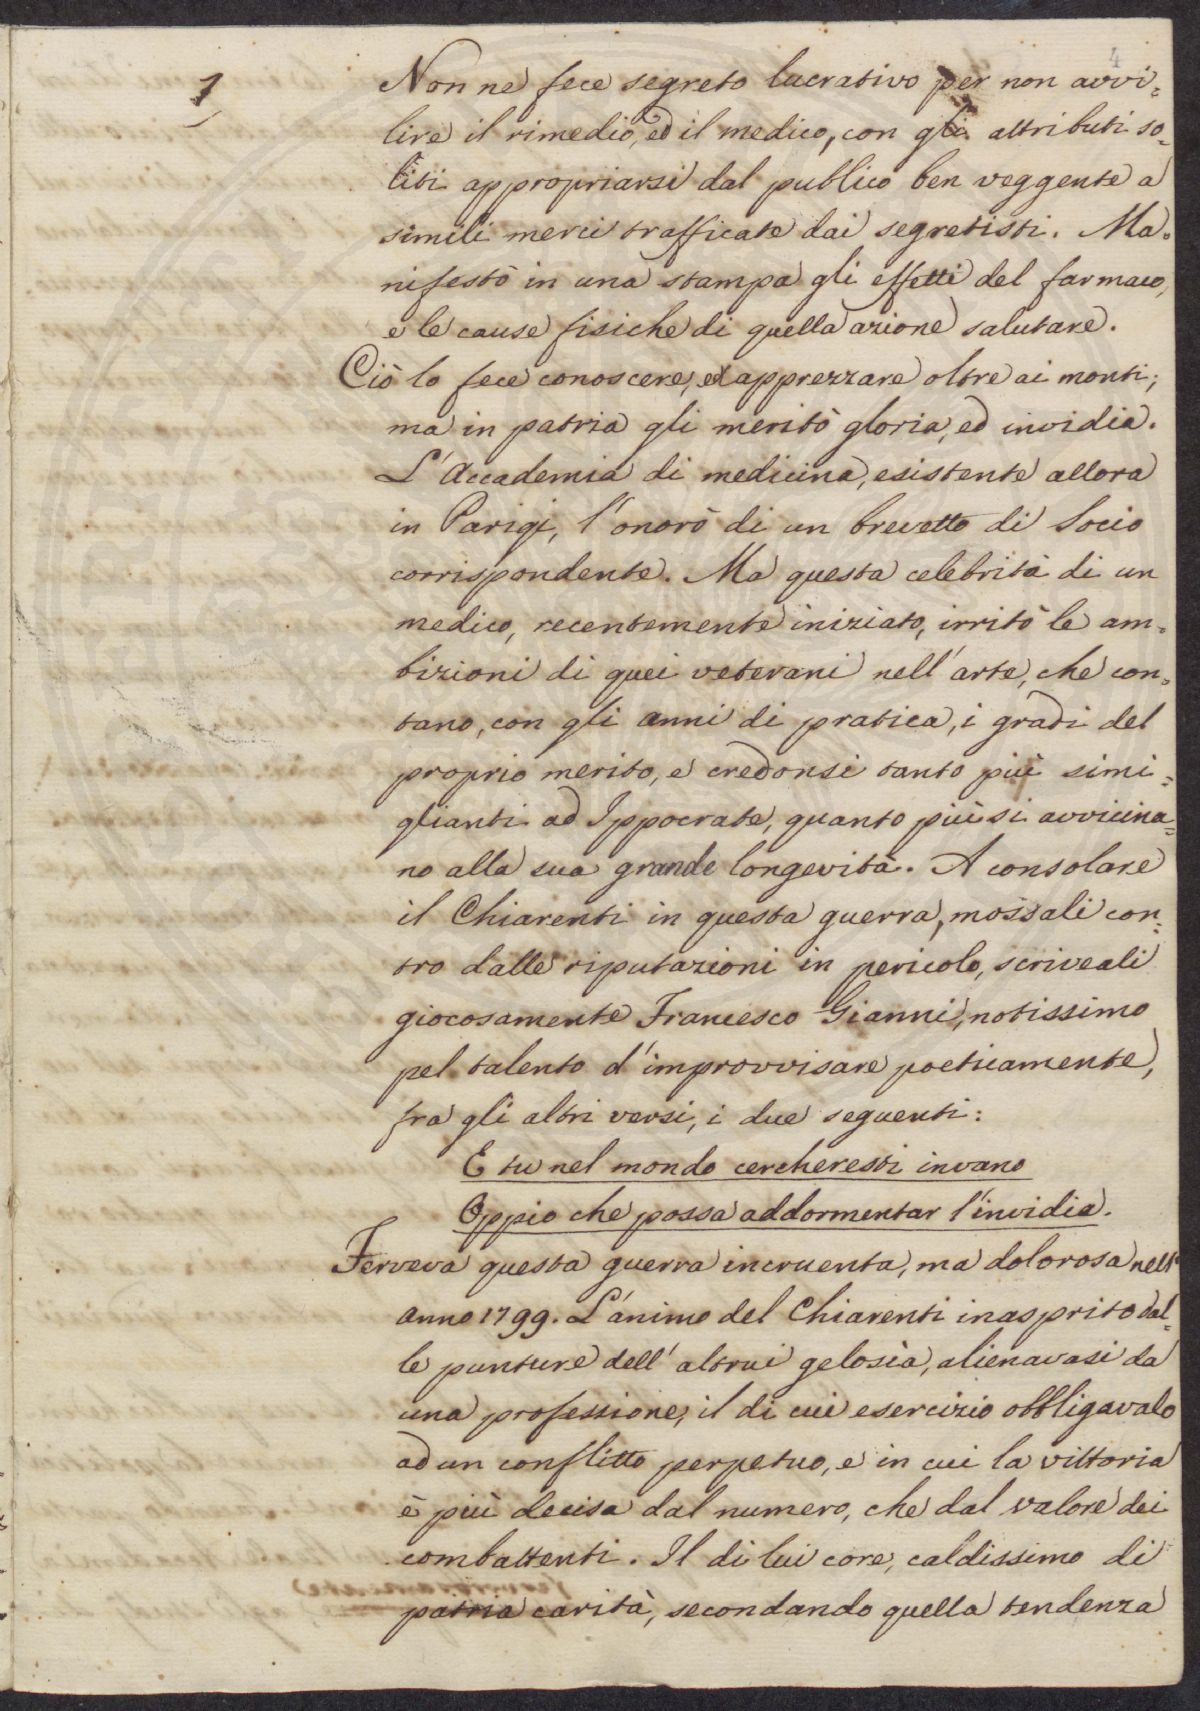 4
7
Non ne fece segreto lucrativo per non avvi=
lire il rimedio, ed il medico, con gli attributi so=
liti appropriarsi dal publico ben veggente a
simili merci trafficate dai segretisti. Ma=
nifestò in una stampa gli effetti del farmaco,
e le cause fisiche di quella azione salutare.
Ciò lo fece conoscere, ed apprezzare oltre ai monti;
ma in patria gli meritò gloria, ed invidia.
L'Accademia di medicina, esistente allora
in Parigi, l'onorò di un brevetto di Socio
corrispondente. Ma questa celebrità di un
medico, recentemente iniziato, irritò le am=
bizioni di quei veterani nell'arte, che con=
tano, con gli anni di pratica, i gradi del
proprio merito, e credonsi tanto più simi=
glianti ad Ippocrate, quanto più si avvicina=
no alla sua grande longevità. A consolare
il Chiarenti in questa guerra, mossali con=
tro dalle riputazioni in pericolo, scriveali
giocosamente Francesco Gianni, notissimo
pel talento d'improvvisare poeticamente,
fra gli altri versi, i due seguenti:
E tu nel mondo cercheresti invano
Oppio che possa addormentar l'invidia.
Ferveva questa guerra incruenta, ma dolorosa nell'
anno 1799. L'animo del Chiarenti inasprito dal=
le punture dell'altrui gelosia, alienavasi da
una professione, il di cui esercizio obbligavalo
ad un conflitto perpetuo, e in cui la vittoria
è più decisa dal numero, che dal valore dei
combattenti. Il di lui core, caldissimo di
patria carità, secondando quella tendenza